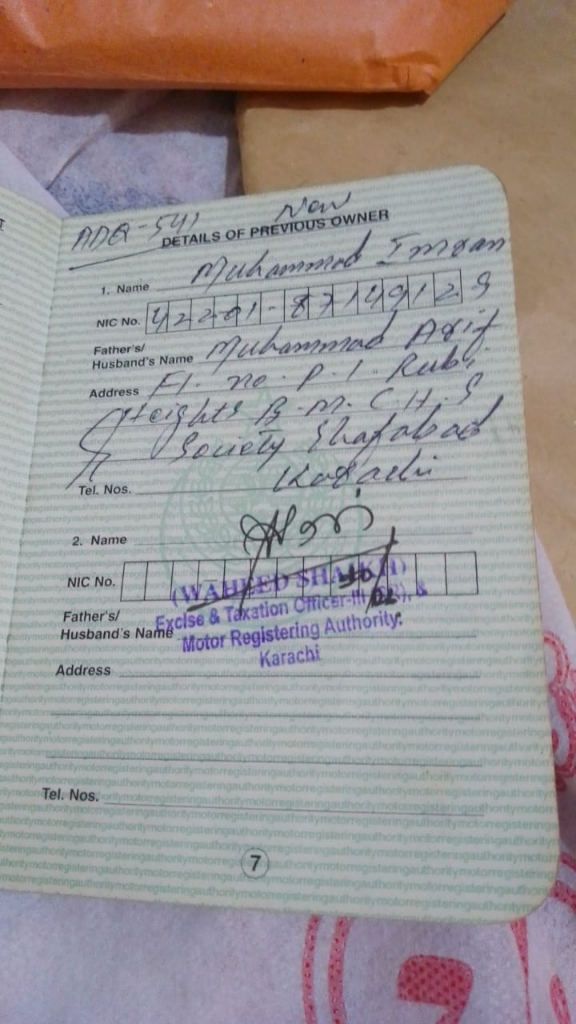 ADQ-541 New
DETAILS OF PREVIOUS OWNER
1. Name Muhammad Imran
NIC No. 42201-8714912 9
Father's/
Husband's Name Muhammad Asif
Address Fl. no. P. 1. Rubi
Heights B. M. C. H. S
Society Sharfabad
Tel. Nos. Karachi
2. Name
NIC No.
(WAHEED SHAIKH)
Father's/
Husband's Name
Excise & Taxation Officer-III &
Motor Registering Authority.
Karachi
Address
Tel. Nos.
7